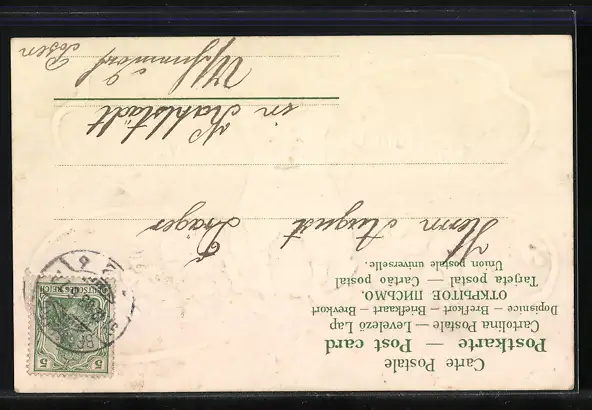 Carte Postale
Postkarte — Post card
Cartolina Postale — Levelező Lap
Dopisnice — Brefkort — Briefkaart — Brevkort
ОТКРЫТОЕ ПИСЬМО.
Tarjeta postal — Cartão postal
Union postale universelle.
Herrn August
in
Posen
DEUTSCHES REICH
5 5